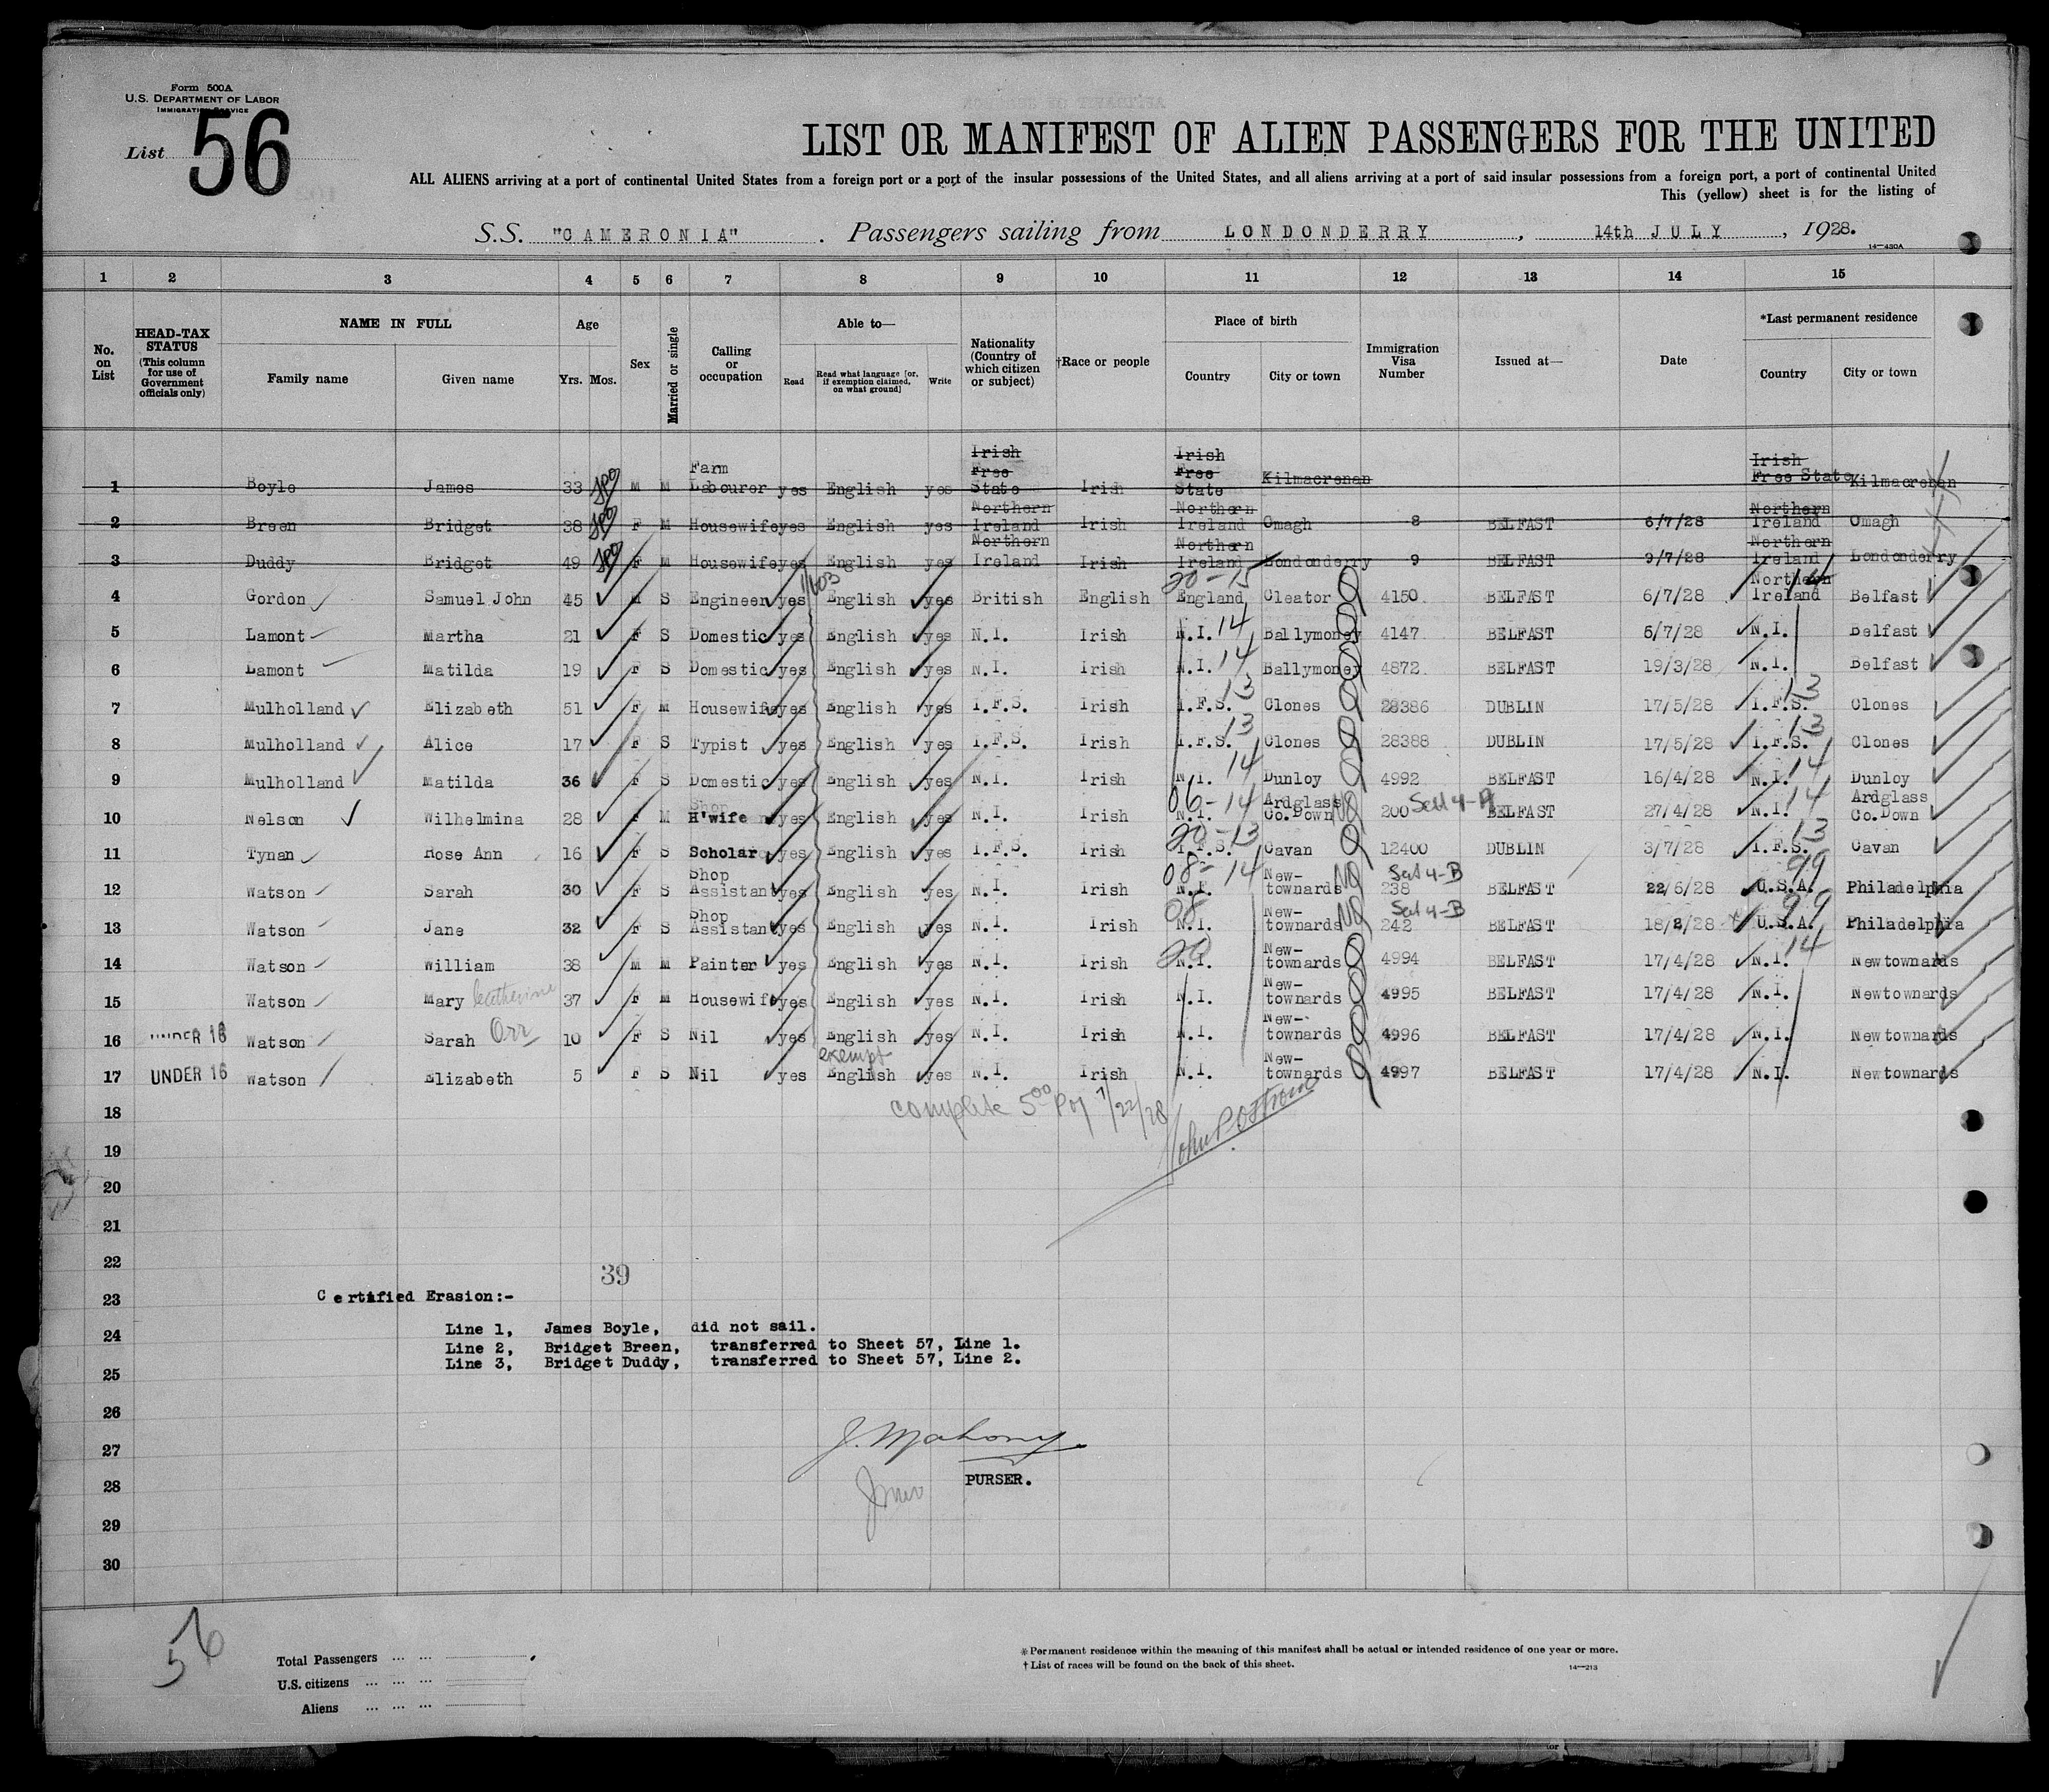 Form 500A
U.S. DEPARTMENT OF LABOR
IMMIGRATION SERVICE
List 56
LIST OR MANIFEST OF ALIEN PASSENGERS FOR THE UNITED
ALL ALIENS arriving at a port of continental United States from a foreign port or a port of the insular possessions of the United States, and all aliens arriving at a port of said insular possessions from a foreign port, a port of continental United
This (yellow) sheet is for the listing of
S.S. "CAMERONIA". Passengers sailing from LONDONDERRY, 14th JULY, 1928.
14—430A
1 2 3 4 5 6 7 8 9 10 11 12 13 14 15
No. on List
HEAD-TAX STATUS (This column for use of Government officials only)
NAME IN FULL
Family name Given name
Age
Yrs. Mos.
Sex
Married or single
Calling or occupation
Able to—
Read Read what language [or, if exemption claimed, on what ground] Write
Nationality (Country of which citizen or subject)
†Race or people
Place of birth
Country City or town
Immigration Visa Number
Issued at—
Date
*Last permanent residence
Country City or town
1 Boyle James 33 M M Farm Labourer yes English yes Irish Free State Irish Irish Free State Kilmacrenan Irish Free State Kilmacrenan
2 Breen Bridget 38 F M Housewife yes English yes Northern Ireland Irish Northern Ireland Omagh 8 BELFAST 6/7/28 Northern Ireland Omagh
3 Duddy Bridget 49 F M Housewife yes English yes Northern Ireland Irish Northern Ireland Londonderry 9 BELFAST 9/7/28 Northern Ireland Londonderry
4 Gordon Samuel John 45 M S Engineer yes English yes British English 20-15 England Cleator 4150 BELFAST 6/7/28 Northern Ireland 14 Belfast
5 Lamont Martha 21 F S Domestic yes English yes N.I. Irish N.I. 14 Ballymoney 4147 BELFAST 5/7/28 N.I. Belfast
6 Lamont Matilda 19 F S Domestic yes English yes N.I. Irish N.I. 14 Ballymoney 4872 BELFAST 19/3/28 N.I. Belfast
7 Mulholland Elizabeth 51 F M Housewife yes English yes I.F.S. Irish I.F.S. 13 Clones 28386 DUBLIN 17/5/28 I.F.S. 13 Clones
8 Mulholland Alice 17 F S Typist yes English yes I.F.S. Irish I.F.S. 13 Clones 28388 DUBLIN 17/5/28 I.F.S. 13 Clones
9 Mulholland Matilda 36 F S Domestic yes English yes N.I. Irish N.I. 14 Dunloy 4992 BELFAST 16/4/28 N.I. 14 Dunloy
10 Nelson Wilhelmina 28 F M H'wife yes English yes N.I. Irish 06-14 N.I. Ardglass Co.Down NQ 200 BELFAST 27/4/28 N.I. 14 Ardglass Co.Down
11 Tynan Rose Ann 16 F S Scholar yes English yes I.F.S. Irish 20-13 I.F.S. Cavan 12400 DUBLIN 3/7/28 I.F.S. 13 Cavan
12 Watson Sarah 30 F S Shop Assistant yes English yes N.I. Irish 08-14 N.I. New-townards NQ 238 Sect 4-B BELFAST 22/6/28 U.S.A. 99 Philadelphia
13 Watson Jane 32 F S Shop Assistant yes English yes N.I. Irish 08 N.I. New-townards NQ 242 Sect 4-B BELFAST 18/8/28 U.S.A. 99 Philadelphia
14 Watson William 38 M M Painter yes English yes N.I. Irish 20 N.I. New-townards 4994 BELFAST 17/4/28 N.I. 14 Newtownards
15 Watson Mary Catherine 37 F M Housewife yes English yes N.I. Irish N.I. New-townards 4995 BELFAST 17/4/28 N.I. Newtownards
16 UNDER 16 Watson Sarah Orr 10 F S Nil yes English yes N.I. Irish N.I. New-townards 4996 BELFAST 17/4/28 N.I. Newtownards
17 UNDER 16 Watson Elizabeth 5 F S Nil yes exempt English yes N.I. Irish N.I. New-townards 4997 BELFAST 17/4/28 N.I. Newtownards
18 complete 7/22/28
19
20
21
22
39
23 Certified Erasion:-
24 Line 1, James Boyle, did not sail.
Line 2, Bridget Breen, transferred to Sheet 57, Line 1.
Line 3, Bridget Duddy, transferred to Sheet 57, Line 2.
25
26
27 J. Mahony
28 PURSER.
29
30
56
Total Passengers ... ...
U.S. citizens ... ... ...
Aliens ... ... ...
* Permanent residence within the meaning of this manifest shall be actual or intended residence of one year or more.
† List of races will be found on the back of this sheet.
14—213